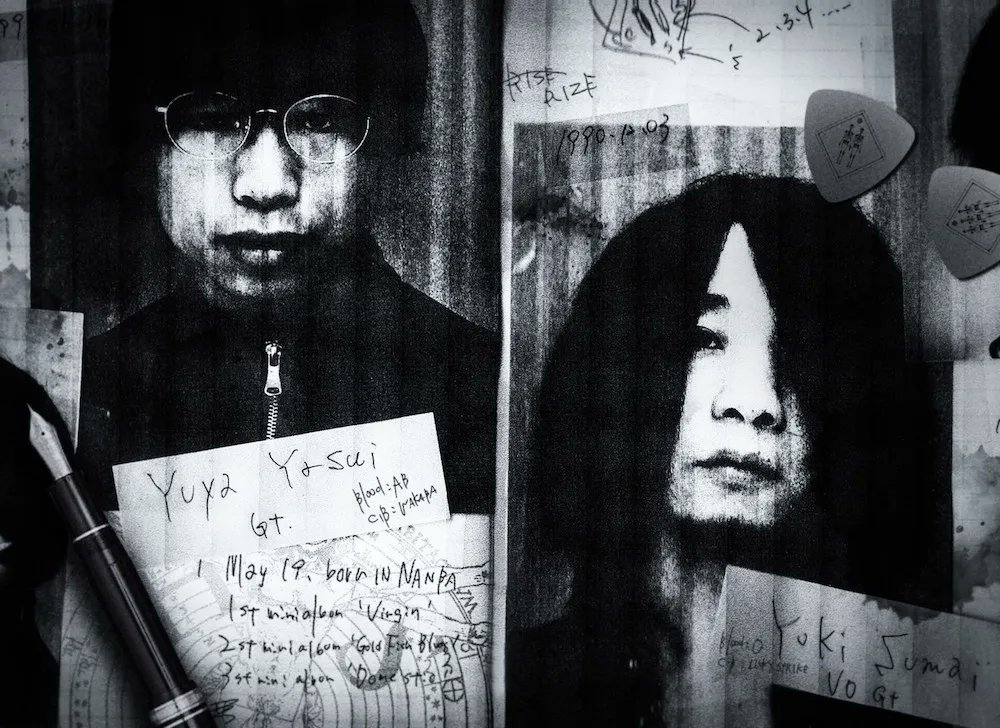 99
2.3.4....
RISE
RIZE
1990.12.03
Yuya Yasui
Gt.
Blood:AB
1 May 19. born IN NANBA
1st mini album 'Virgin'
2st mini album 'Gold Fish Blues'
3st mini album 'Domestic
Yuki Sumai
Vo Gt